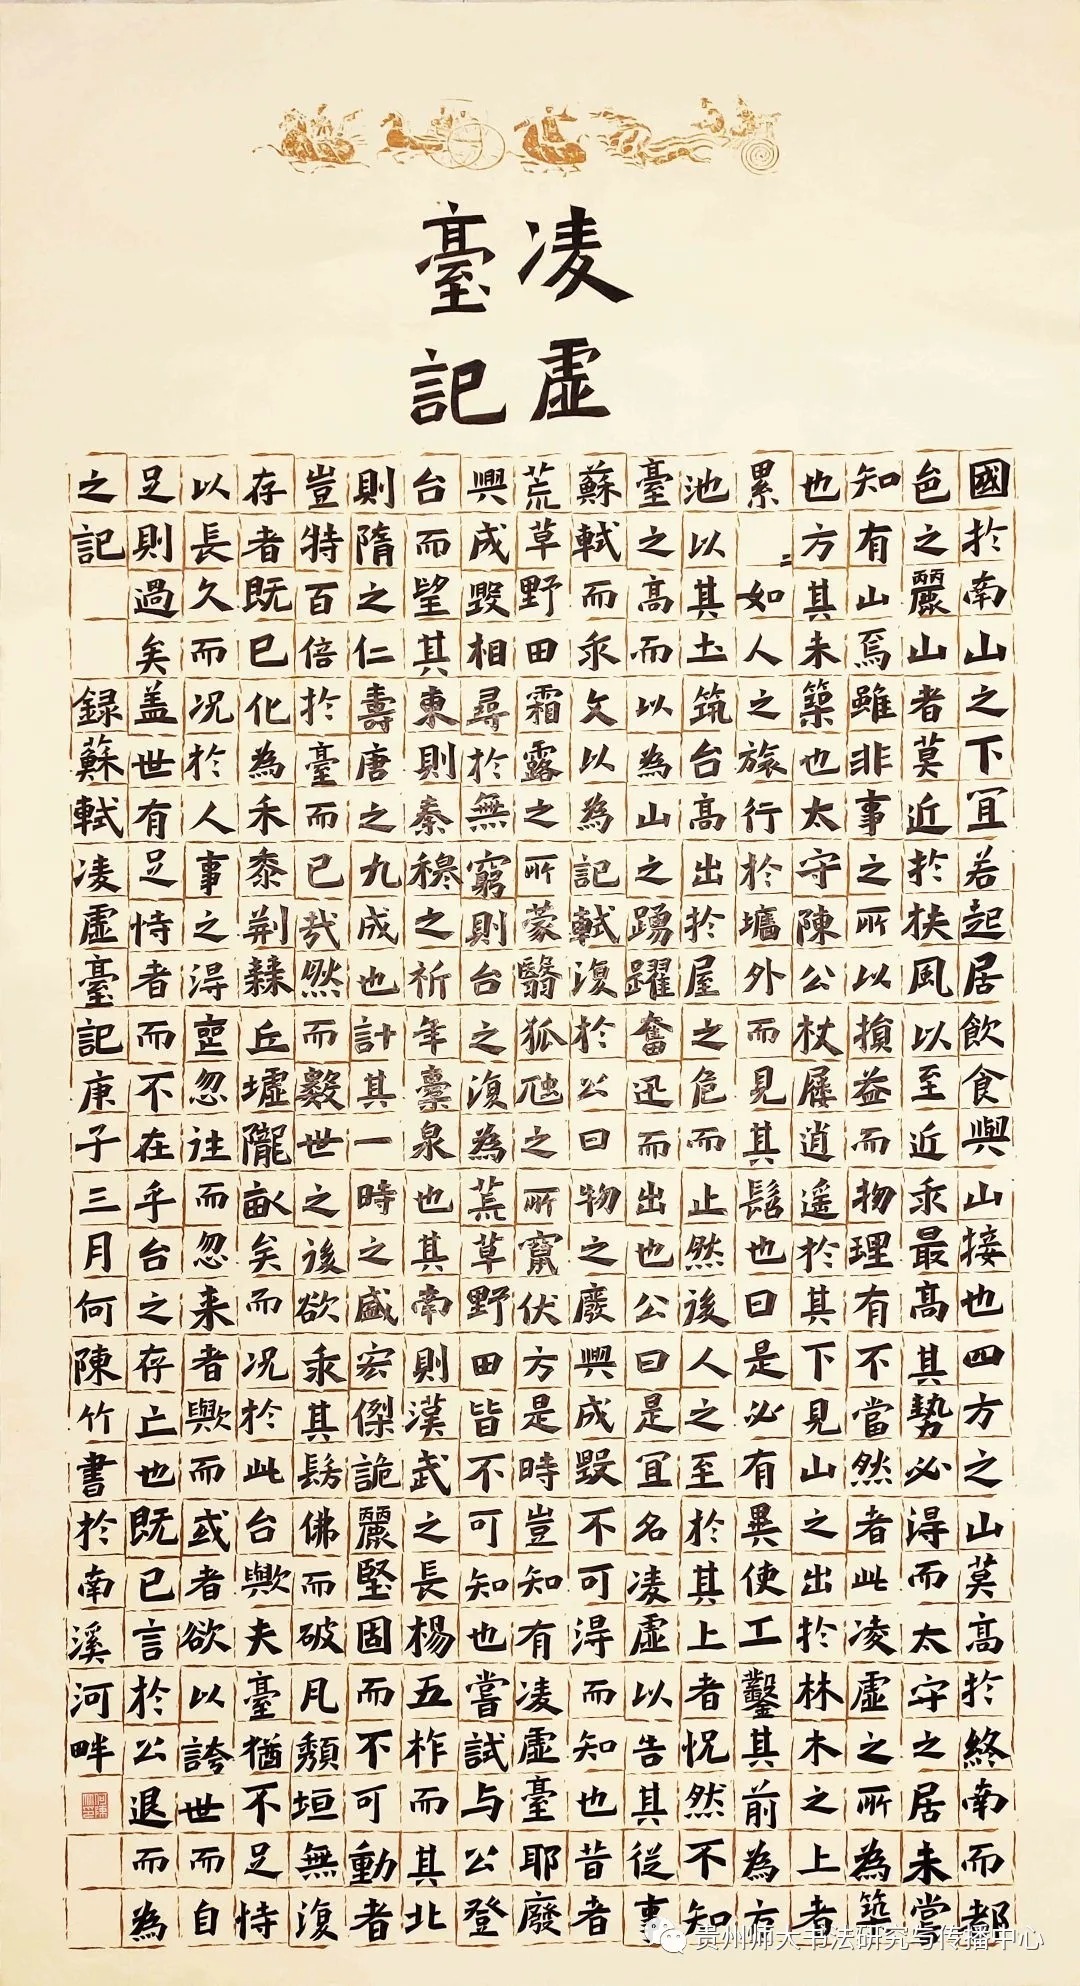 凌虛
臺記
國於南山之下宜若起居飲食與山接也四方之山莫高於終南而都
邑之麗山者莫近於扶風以至近求最高其勢必得而太守之居未嘗
知有山焉雖非事之所以損益而物理有不當然者此凌虛之所為築
也方其未築也太守陳公杖屨逍遥於其下見山之出於林木之上者
累〻如人之旅行於墻外而見其髻也曰是必有異使工鑿其前為方
池以其土筑台高出於屋之危而止然後人之至於其上者怳然不知
臺之高而以為山之踴躍奮迅而出也公曰是宜名凌虛以告其從事
蘇軾而求文以為記軾復於公曰物之廢興成毀不可得而知也昔者
荒草野田霜露之所蒙翳狐虺之所竄伏方是時豈知有凌虛臺耶廢
興成毀相尋於無窮則台之復為荒草野田皆不可知也嘗試与公登
台而望其東則秦穆之祈年橐泉也其南則漢武之長楊五柞而其北
則隋之仁壽唐之九成也計其一時之盛宏傑詭麗堅固而不可動者
豈特百倍於臺而已哉然而數世之後欲求其髣佛而破凡頽垣無復
存者既已化為禾黍荆棘丘墟隴畝矣而况於此台歟夫臺猶不足恃
以長久而况於人事之得喪忽往而忽来者歟而或者欲以誇世而自
足則過矣盖世有足恃者而不在乎台之存亡也既已言於公退而為
之記 録蘇軾凌虛臺記庚子三月何陳竹書於南溪河畔
贵州师大书法研究与传播中心